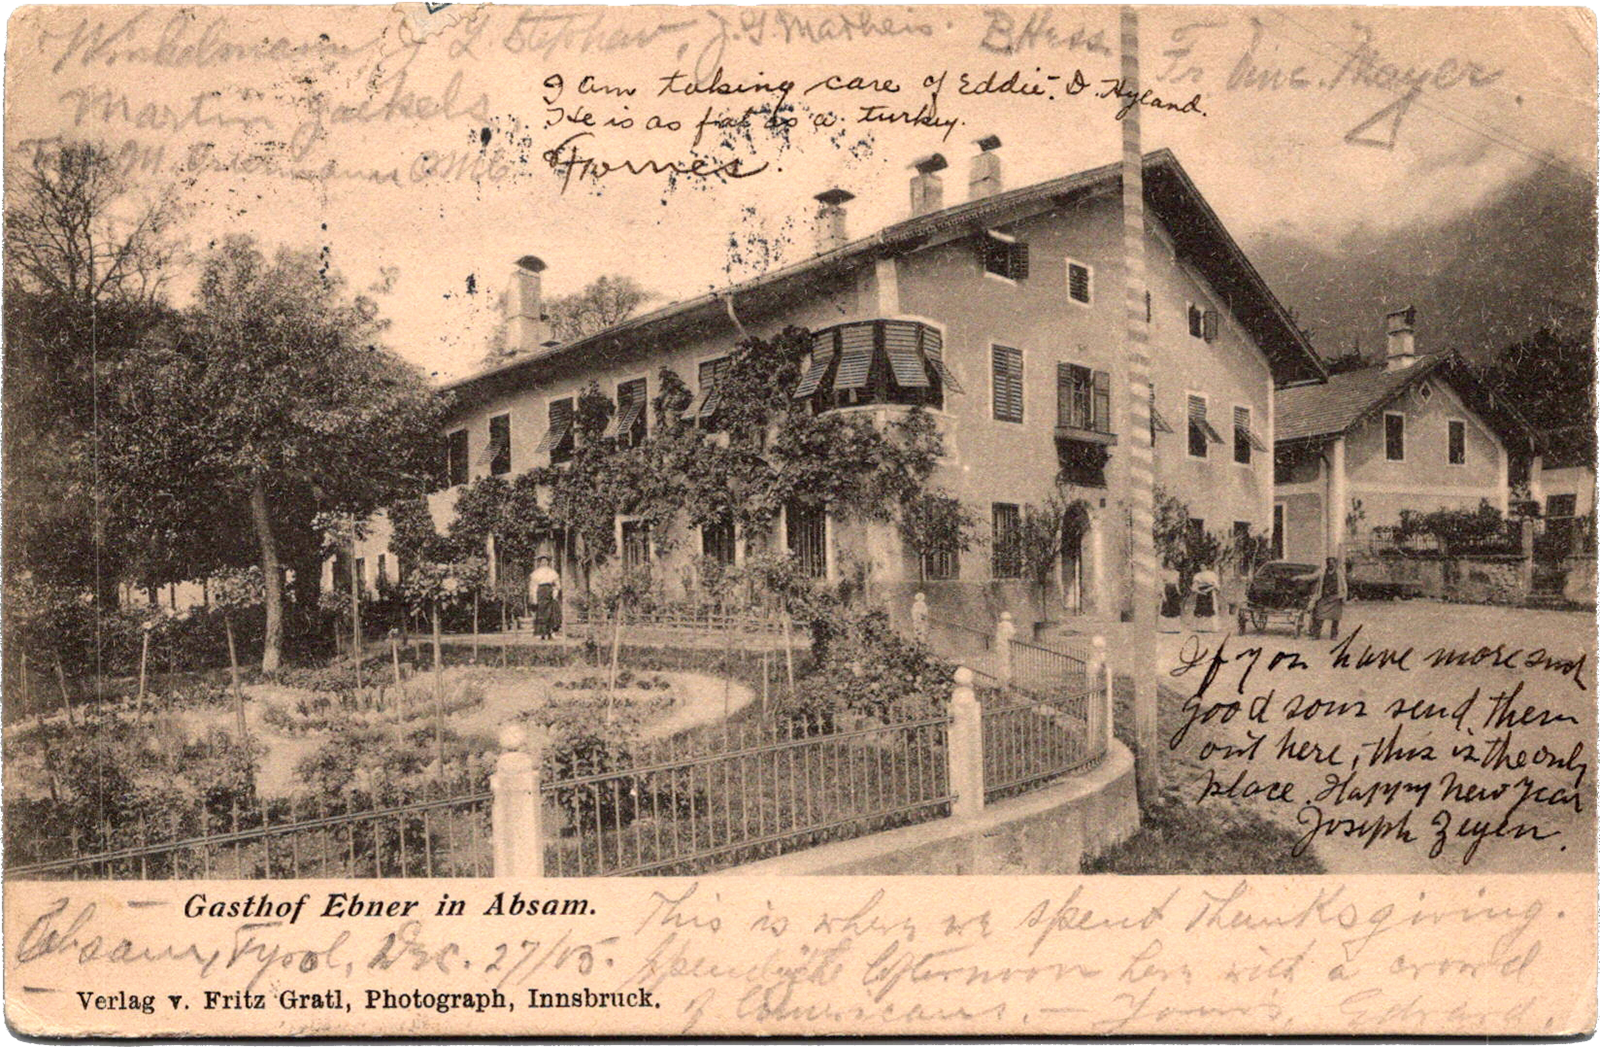 Winkelmann, L. Stephan, J. G. Matheis. B Hess Fr. Vinc. Mayer.
Martin
I am taking care of Eddie. D. Hyland.
He is as fat as a turkey.
If you have more such
good sons send them
out here, this is the only
place. Happy New Year
Joseph Zeyen.
Gasthof Ebner in Absam.
Absam, Tyrol, Dec. 27/05.
This is where we spent Thanksgiving.
Spending the afternoon here with a crowd
of Americans. — Yours, Edward.
Verlag v. Fritz Gratl, Photograph, Innsbruck.